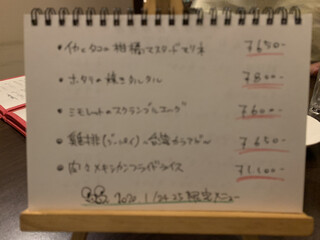 ・イカとタコの柑橘マスタードマリネ ¥650-
・ホタテの焼きタルタル ¥800-
・ミモレットのスクランブルエッグ ¥600-
・鶏排(ジーパイ)〜台湾からアゲ〜 ¥650-
・メキシカンフライドライス ¥1,100-
2020 1/24・25 限定メニュー